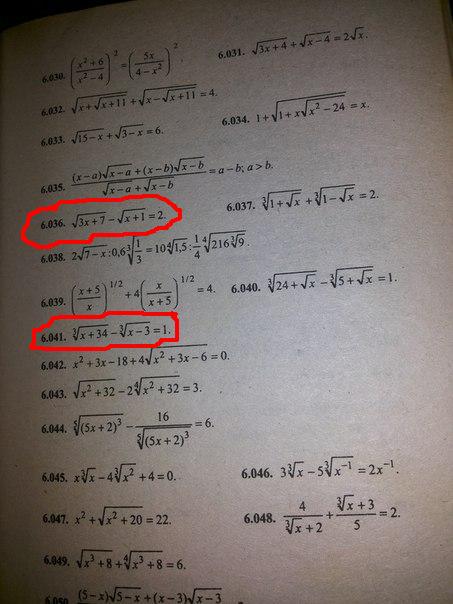 6.030. (x²+6 / x²−4)² = (5x / 4−x²)².
6.031. √(3x+4) + √(x−4) = 2√x.
6.032. √(x+√(x+11)) + √(x−√(x+11)) = 4.
6.033. √(15−x) + √(3−x) = 6.
6.034. 1+√(1+x√(x²−24)) = x.
6.035. ((x−a)√(x−a) + (x−b)√(x−b)) / (√(x−a) + √(x−b)) = a−b; a > b.
6.036. √(3x+7) − √(x+1) = 2.
6.037. ∛(1+√x) + ∛(1−√x) = 2.
6.038. 2√(7−x) : 0,6∛(1/3) = 10∜1,5 : 1/4 ∜(216∛9).
6.039. ((x+5)/x)^1/2 + 4(x/(x+5))^1/2 = 4.
6.040. ∛(24+√x) − ∛(5+√x) = 1.
6.041. ∛(x+34) − ∛(x−3) = 1.
6.042. x²+3x−18+4√(x²+3x−6) = 0.
6.043. √(x²+32) − 2∜(x²+32) = 3.
6.044. ⁵√((5x+2)³) − 16 / ⁵√((5x+2)³) = 6.
6.045. x∛x − 4∛(x²) + 4 = 0.
6.046. 3∛x − 5∛(x⁻¹) = 2x⁻¹.
6.047. x² + √(x²+20) = 22.
6.048. 4 / (∛x+2) + (∛x+3) / 5 = 2.
6.049. √(x³+8) + ∜(x³+8) = 6.
6.050. (5−x)√(5−x) + (x−3)√(x−3)